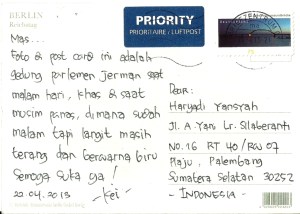 BERLIN
PRIORITY
PRIORITAIRE / LUFTPOST
Mas...
Foto di post card ini adalah
gedung parlemen Jerman saat
malam hari, khas di saat
musim panas, dimana sudah
malam tapi langit masih
terang dan berwarna biru
Semoga suka ya!
22.04.2013 -Kei-
Dear:
Haryadi Yansyah
Jl. A. Yani Lr. Silaberanti
NO.16 RT 40/RW 07
Plaju, Palembang
Sumatera Selatan 30252
- INDONESIA -